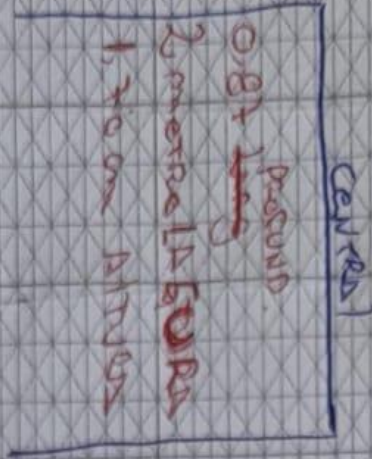 CENTRAL
0,87 PROFUND.
2 metro LAGURA
1,70 cm ALTURA